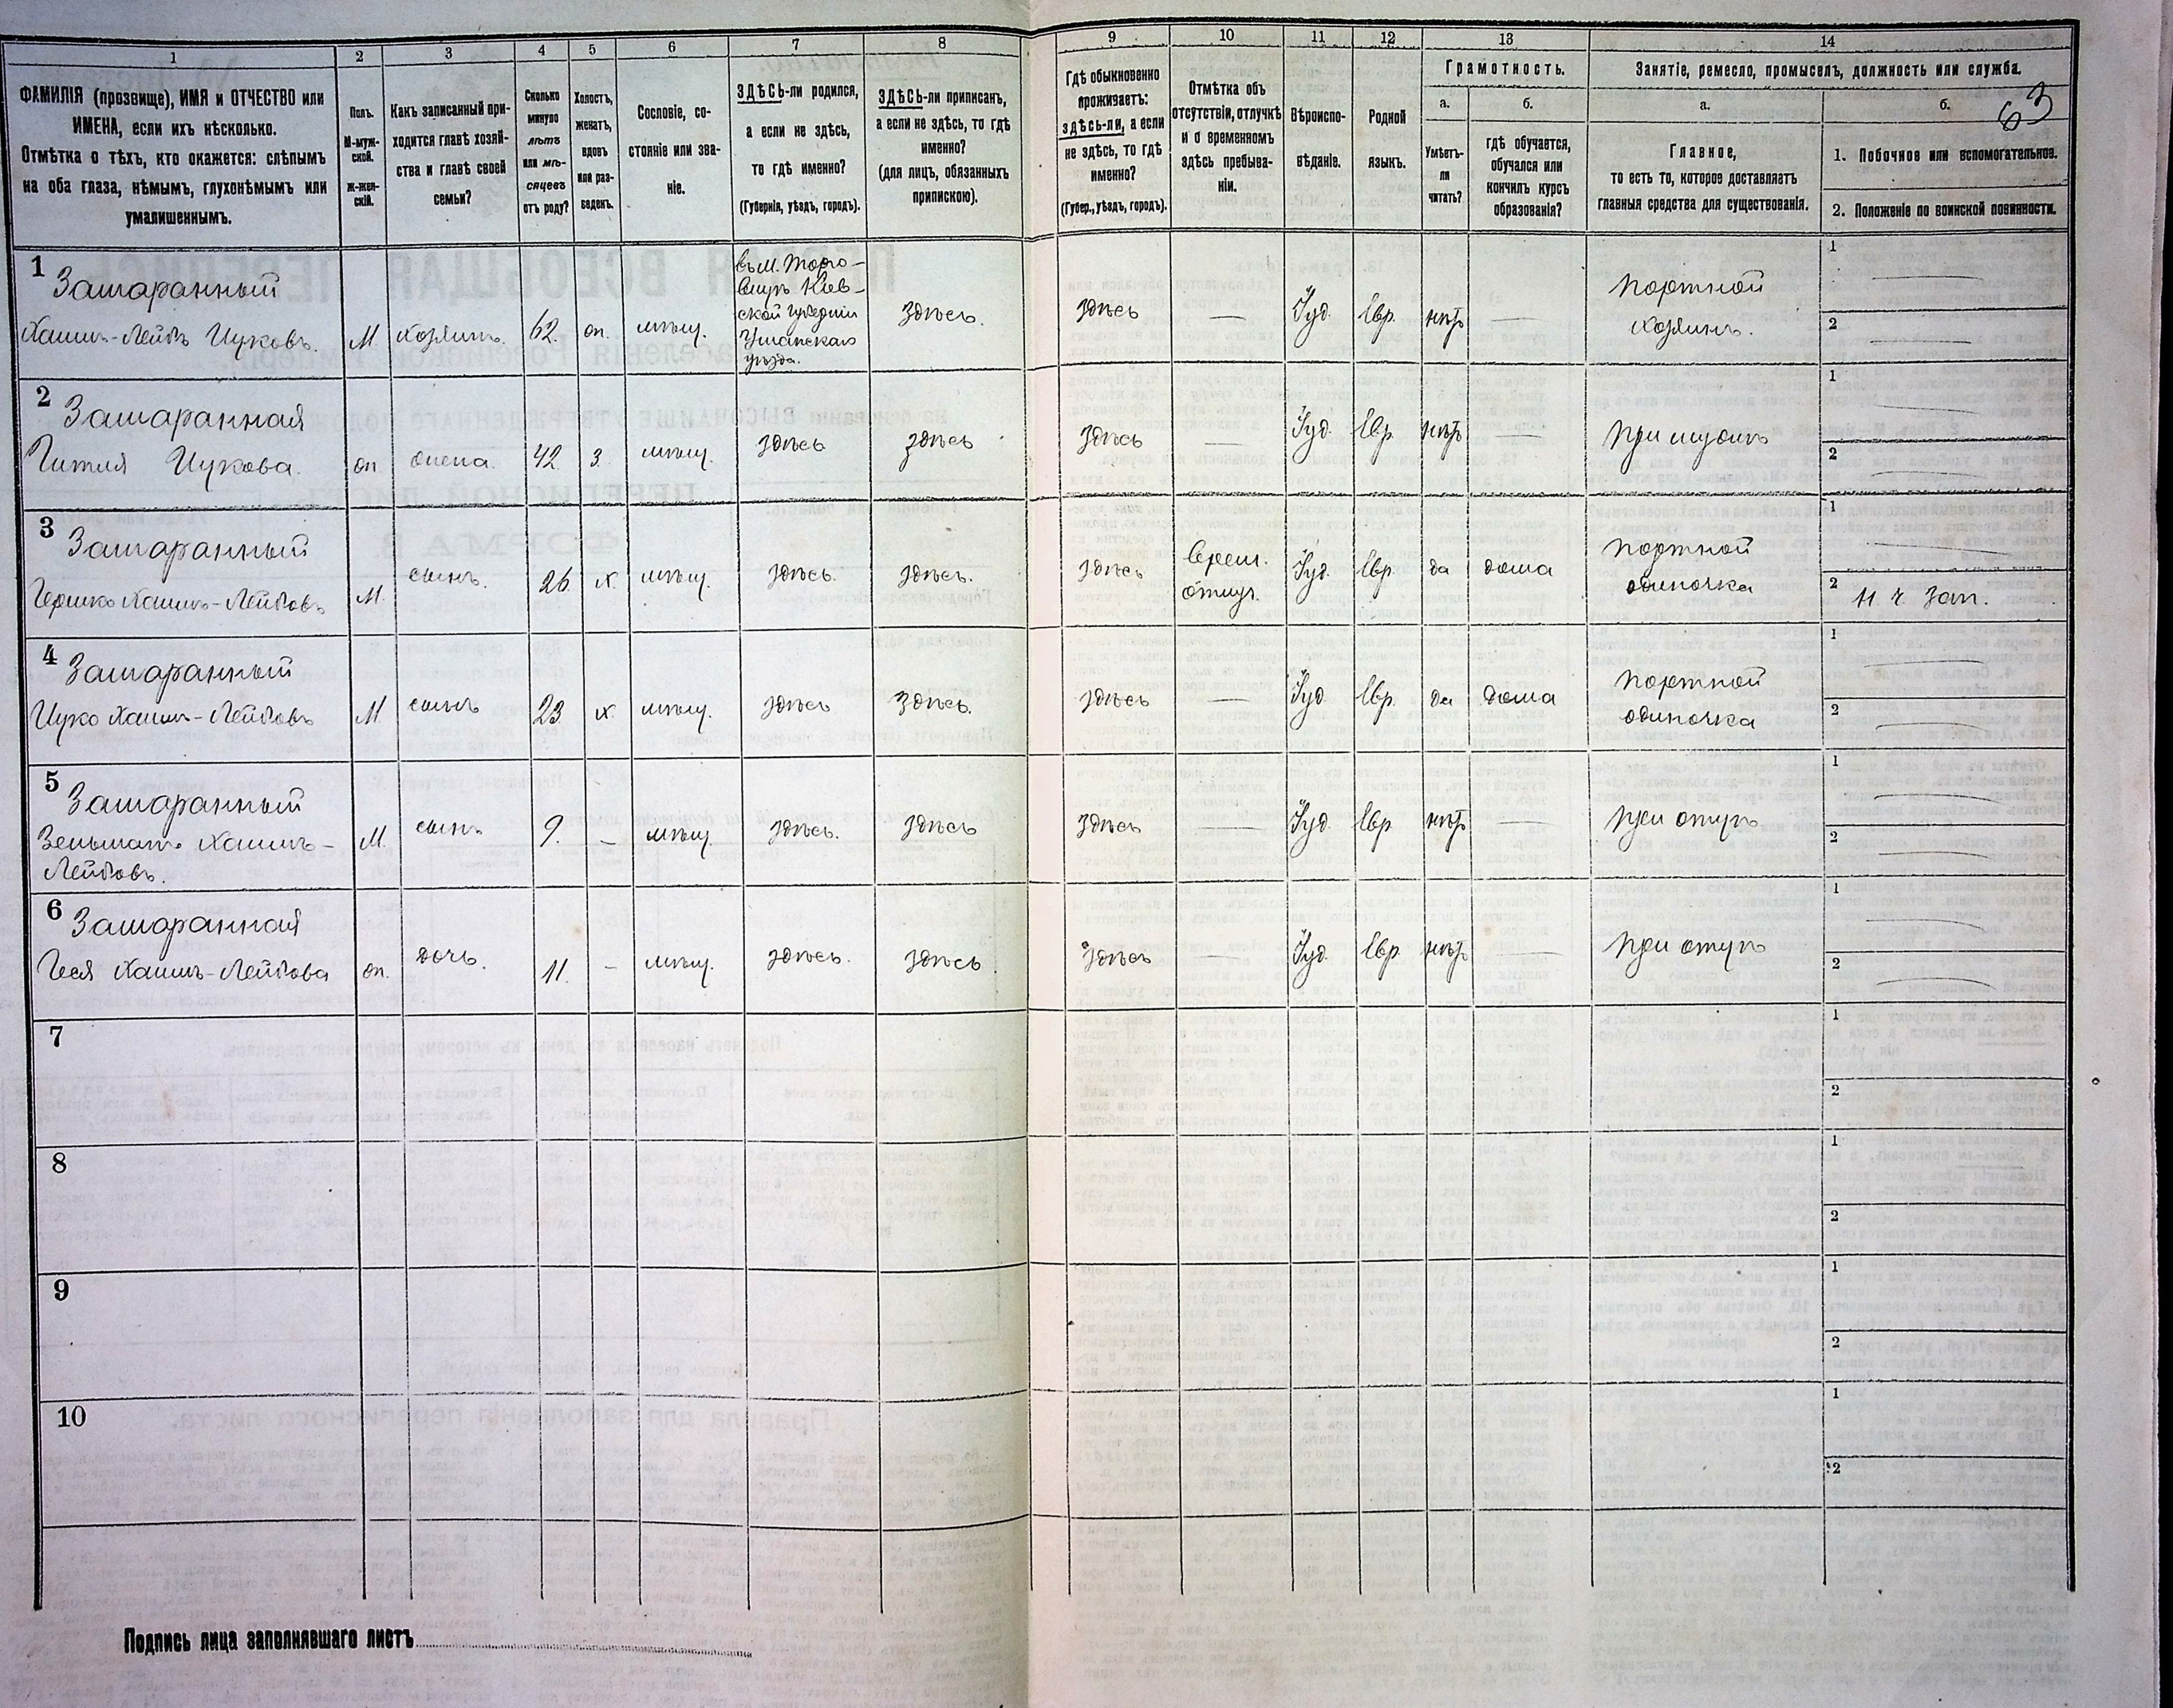 1 2 3 4 5 6 7 8 9 10 11 12 13 14
ФАМИЛІЯ (прозвище), ИМЯ и ОТЧЕСТВО или
ИМЕНА, если ихъ нѣсколько.
Отмѣтка о тѣхъ, кто окажется: слѣпымъ
на оба глаза, нѣмымъ, глухонѣмымъ или
умалишеннымъ.
Полъ.
М-муж-
ской.
Ж-жен-
скій.
Какъ записанный при-
ходится главѣ хозяй-
ства и главѣ своей
семьи?
Сколько
минуло
лѣтъ
или мѣ-
сяцевъ
отъ роду?
Холостъ,
женатъ,
вдовъ
или раз-
веденъ.
Сословіе, со-
стояніе или зва-
ніе.
ЗДѢСЬ-ли родился,
а если не здѣсь,
то гдѣ именно?
(Губернія, уѣздъ, городъ).
ЗДѢСЬ-ли приписанъ,
а если не здѣсь, то гдѣ
именно?
(для лицъ, обязанныхъ
припискою).
Гдѣ обыкновенно
проживаетъ:
здѣсь-ли, а если
не здѣсь, то гдѣ
именно?
(Губер., уѣздъ, городъ).
Отмѣтка объ
отсутствіи, отлучкѣ
и о временномъ
здѣсь пребыва-
ніи.
Вѣроиспо-
вѣданіе.
Родной
языкъ.
Грамотность.
а.
Умѣетъ-
ли
читать?
б.
гдѣ обучается,
обучался или
кончилъ курсъ
образованія?
Занятіе, ремесло, промыселъ, должность или служба.
а.
Главное,
то есть то, которое доставляетъ
главныя средства для существованія.
б.
63
1. Побочное или вспомогательное.
2. Положеніе по воинской повинности.
1
Зашаранный
Хаимъ-Лейбъ Ицковъ.
М.
хозяинъ.
62.
мѣщ.
въ м. Торго-
вицѣ Кіев-
ской губерніи
Уманскаго
уѣзда.
Здѣсь.
здѣсь
—
Іуд.
Евр.
нѣтъ
—
портной
хозяинъ.
1 —
2 —
2
Зашаранная
Ицкова.
жена.
42.
з.
мѣщ.
здѣсь
здѣсь
здѣсь
—
Іуд.
Евр.
нѣтъ
—
при мужѣ
1 —
2 —
3
Зашаранный
Гершко Хаимъ-Лейбовъ
М.
сынъ.
26
х
мѣщ.
здѣсь.
здѣсь.
здѣсь
Врем.
отлуч.
Іуд.
Евр.
да
дома
портной
одиночка
1 —
2 н. ч. зап.
4
Зашаранный
Ицко Хаимъ-Лейбовъ
М.
сынъ
23
х.
мѣщ.
здѣсь
Здѣсь.
здѣсь
—
Іуд.
Евр.
да
дома
портной
одиночка
1 —
2 —
5
Зашаранный
Зельманъ Хаимъ-
Лейбовъ.
М.
сынъ
9.
–
мѣщ.
здѣсь.
здѣсь
здѣсь
—
Іуд.
Евр.
нѣтъ
—
при отцѣ
1 —
2 —
6
Зашаранная
Хаимъ-Лейбова
дочь.
11.
–
мѣщ.
здѣсь.
здѣсь
здѣсь
—
Іуд.
Евр.
нѣтъ
—
при отцѣ
1 —
2 —
7
1
2
8
1
2
9
1
2
10
1
2
Подпись лица заполнявшаго листъ